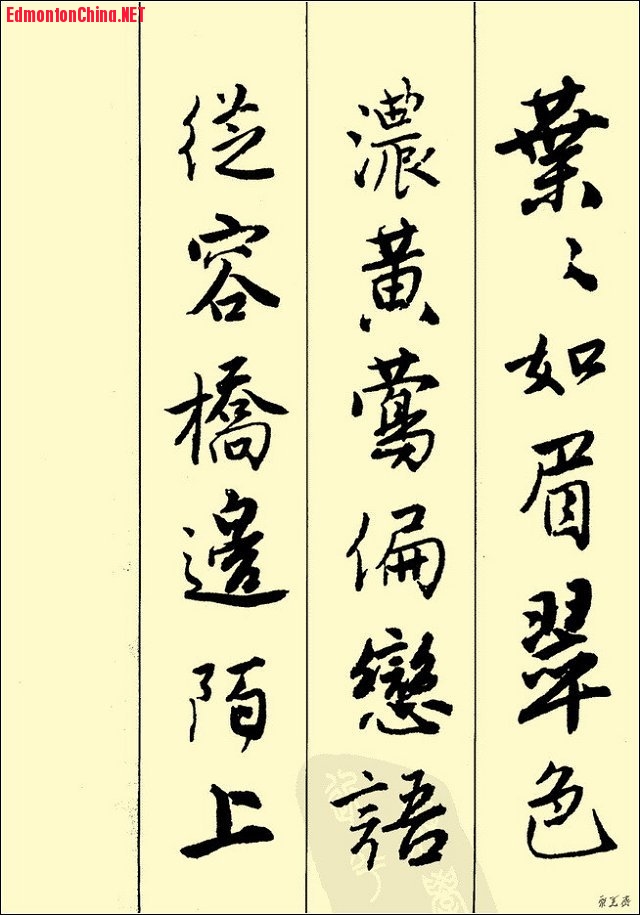 EdmontonChina.NET
葉〻如眉翠色
濃黄鶯偏戀語
從容橋邊陌上